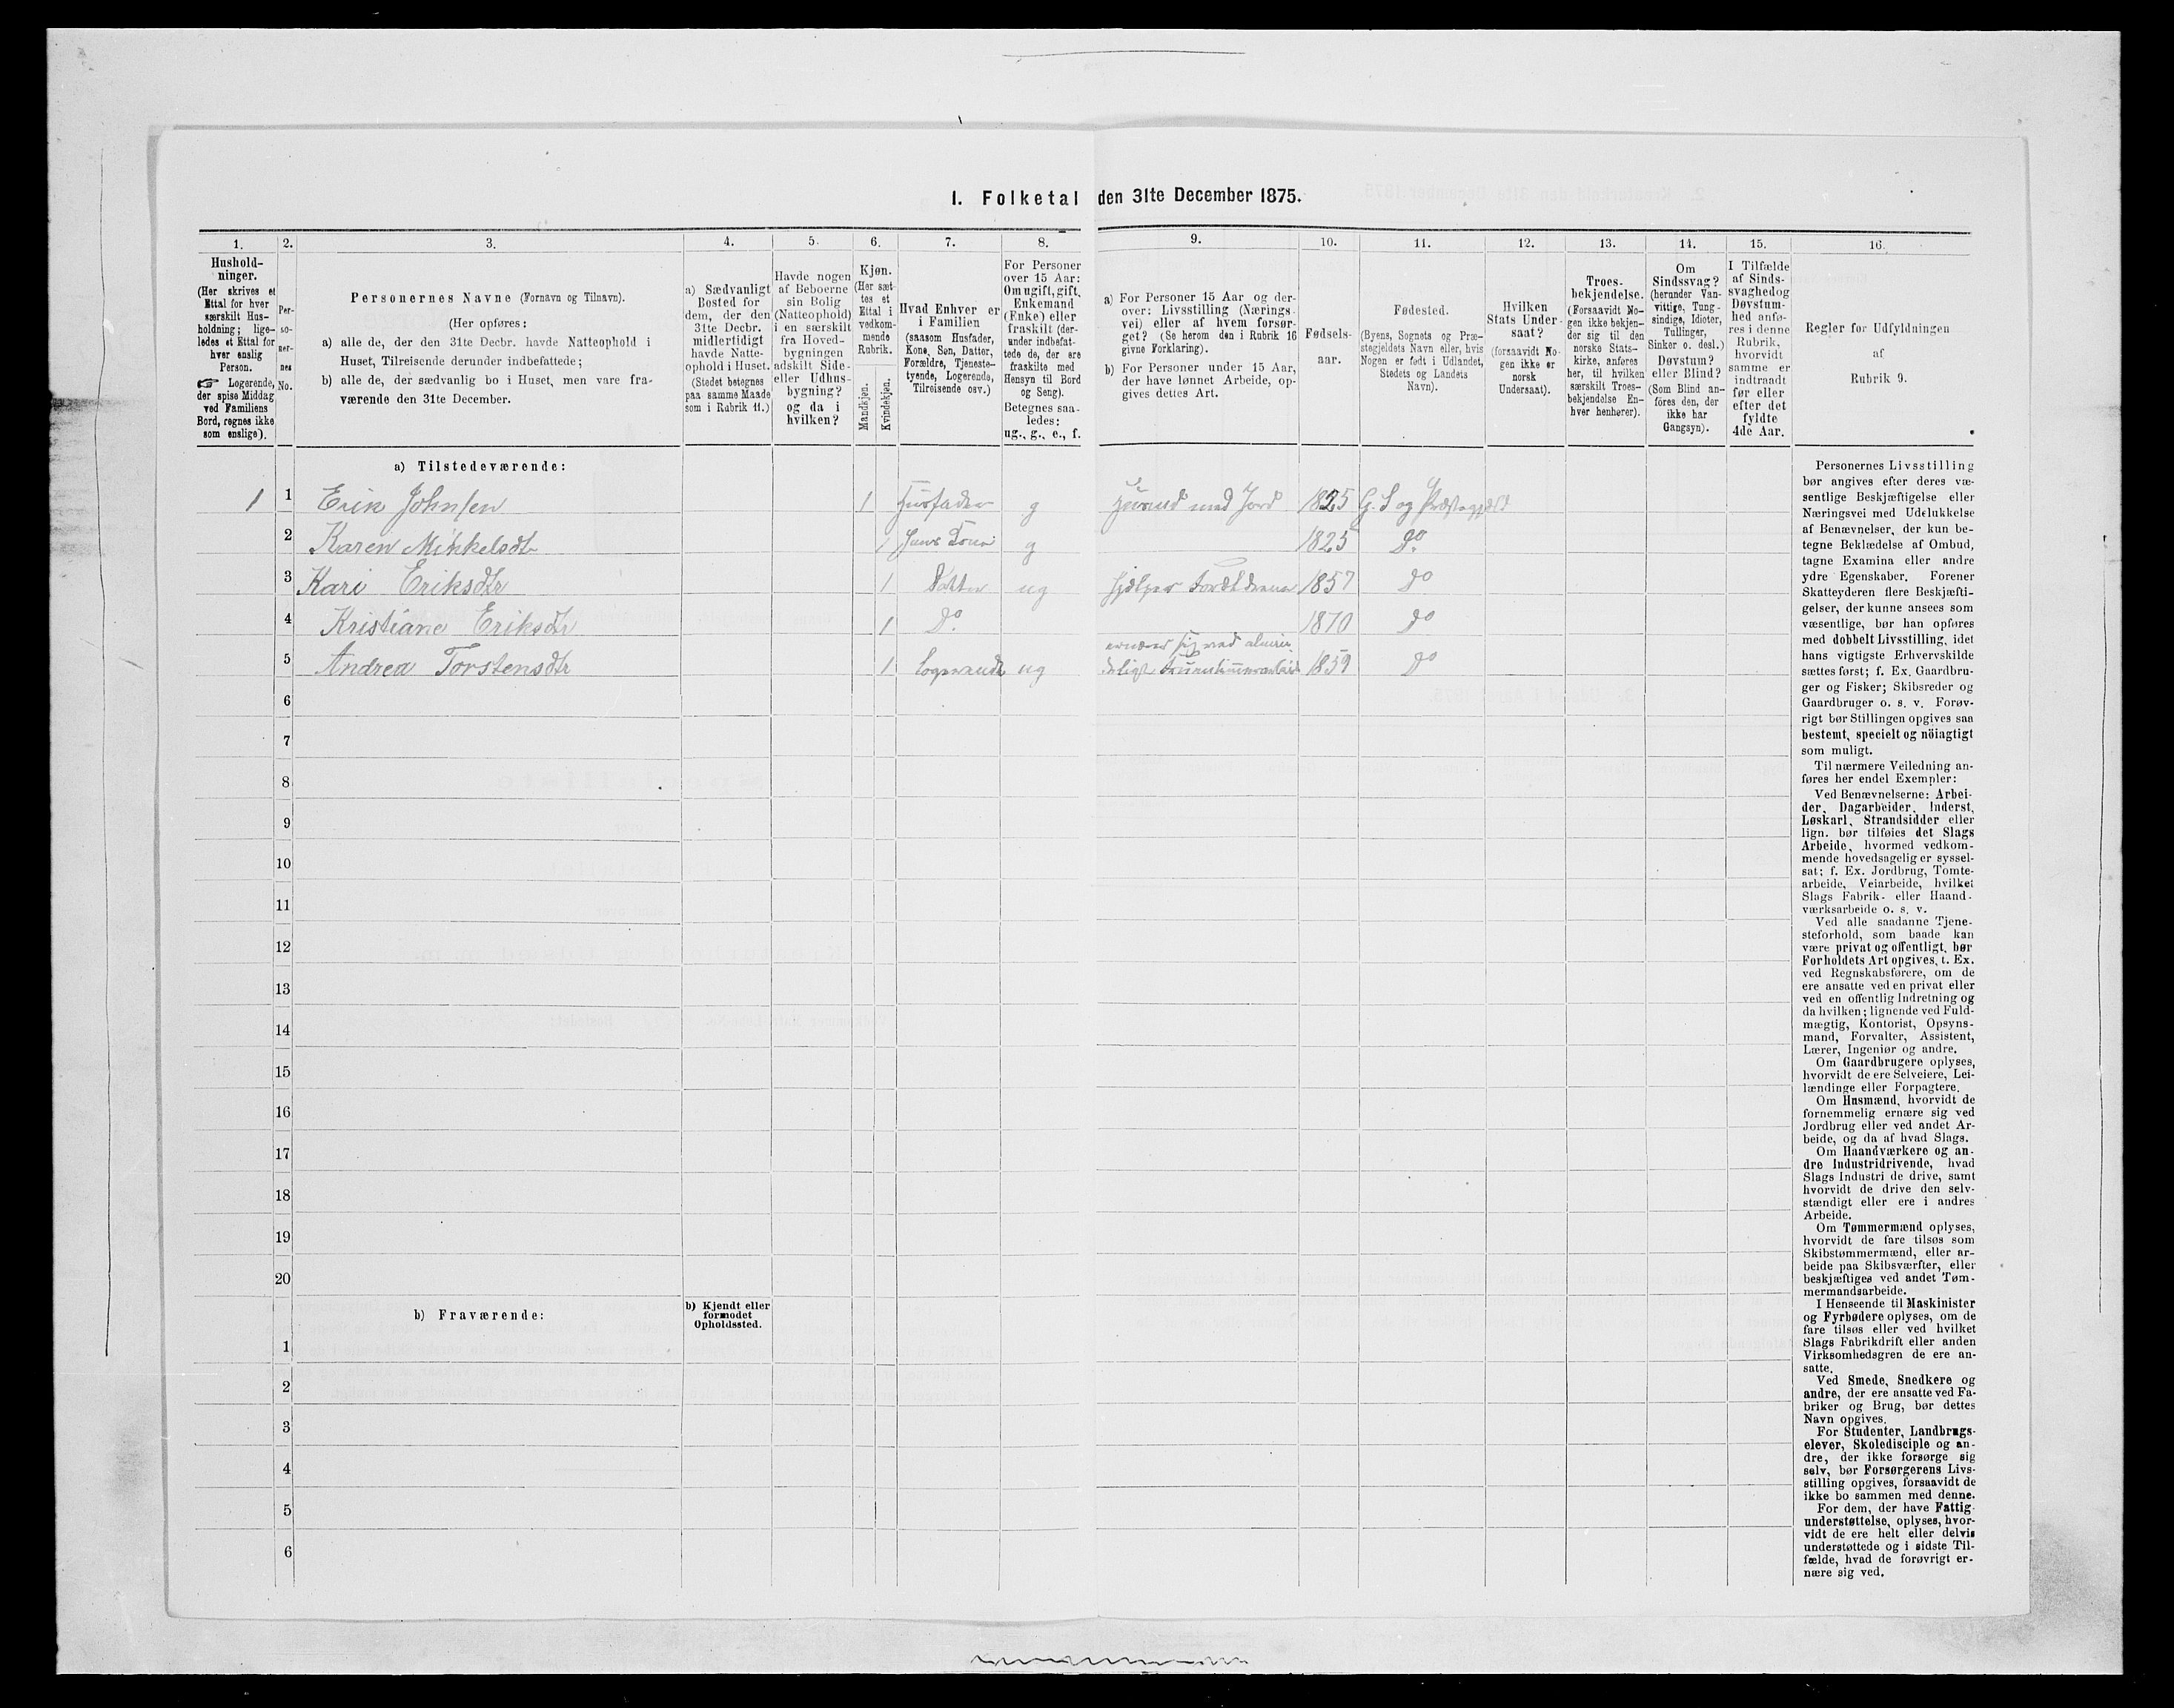 I. Folketal den 31te December 1875.
1.
2.
3.
4.
5.
6.
7.
8.
9.
10.
11.
12.
13.
14.
15.
16.
Hushold-
ninger.
(Her skrives et
Ettal for hver
særskilt Hus-
holdning; lige-
ledes et Ettal for
hver enslig
Person.
☞ Logerende,
der spise Middag
ved Familiens
Bord, regnes ikke
som enslige).
Per-
so-
ner-
nes
No.
Personernes Navne (Fornavn og Tilnavn).
(Her opføres:
a) alle de, der den 31te Decbr. havde Natteophold i
Huset, Tilreisende derunder indbefattede;
b) alle de, der sædvanlig bo i Huset, men vare fra-
værende den 31te December.
a) Sædvanligt
Bosted for
dem, der den
31te Decbr.
midlertidigt
havde Natte-
ophold i Huset.
(Stedet betegnes
paa samme Maade
som i Rubrik 11.)
Havde nogen
af Beboerne
sin Bolig
(Natteophold)
i en særskilt
fra Hoved-
bygningen
adskilt Side-
eller Udhus-
bygning?
og da i
hvilken?
Kjøn.
(Her sæt-
tes et
Ettal i
vedkom-
mende
Rubrik.
Mandkjøn.
Kvindekjøn.
Hvad Enhver er
i Familien
(saasom Husfader,
Kone, Søn, Datter,
Forældre, Tjeneste-
tyende, Logerende,
Tilreisende osv.)
For Personer
over 15 Aar:
Om ugift, gift,
Enkemand
(Enke) eller
fraskilt (der-
under indbefat-
tede de, der ere
fraskilte med
Hensyn til Bord
og Seng).
Betegnes saa-
ledes:
ug., g., e., f.
a) For Personer 15 Aar og der-
over: Livsstilling (Nærings-
vei) eller af hvem forsør-
get? (Se herom den i Rubrik 16
givne Forklaring).
b) For Personer under 15 Aar,
der have lønnet Arbeide, op-
gives dettes Art.
Fødsels-
aar.
Fødested.
(Byens, Sognets og Præ-
stegjeldets Navn eller, hvis
Nogen er født i Udlandet,
Stedets og Landets
Navn).
Hvilken
Stats Under-
saat?
(forsaavidt No-
gen ikke er
norsk
Undersaat).
Troes-
bekjendelse.
(Forsaavidt No-
gen ikke bekjen-
der sig til den
norske Stats-
kirke, anføres
her, til hvilken
særskilt Troes-
bekjendelse En-
hver henhører).
Om
Sindssvag?
(herunder Van-
vittige, Tung-
sindige, Idioter,
Tullinger,
Sinker o. desl.)
Døvstum?
eller Blind?
(Som Blind an-
føres den, der
ikke har
Gangsyn).
I Tilfælde
af Sinds-
svaghed og
Døvstum-
hed anfø-
res i denne
Rubrik,
hvorvidt
samme er
indtraadt
før eller
efter det
fyldte
4de Aar.
Regler for Udfyldningen
af
Rubrik 9.
a) Tilstedeværende:
1 1 Erik Johnsen 1 Husfader g Husmd med Jord 1825 G. S og Præstegjeld
2 Karen Mikkelsdtr 1 Hans Kone g 1825 Do.
3 Kari Eriksdtr 1 Datter ug Hjelper Forældrene 1857 Do
4 Kristiane Eriksdtr 1 Do. 1870 Do
5 Andrea Torstensdtr 1 Logerende ug ernærer sig ved almin
deligt 1859 Do
6
7
8
9
10
11
12
13
14
15
16
17
18
19
20
b) Fraværende:
b) Kjendt eller
formodet
Opholdssted.
1
2
3
4
5
6
Personernes Livsstilling
bør angives efter deres væ-
sentlige Beskjæftigelse eller
Næringsvei med Udelukkelse
af Benævnelser, der kun be-
tegne Beklædelse af Ombud,
tagne Examina eller andre
ydre Egenskaber. Forener
Skatteyderen flere Beskjæfti-
gelser, der kunne ansees som
væsentlige, bør han opføres
med dobbelt Livsstilling, idet
hans vigtigste Erhvervskilde
sættes først; f. Ex. Gaardbru-
ger og Fisker; Skibsreder og
Gaardbruger o. s. v. Forøv-
rigt bør Stillingen opgives saa
bestemt, specielt og nöiagtigt
som muligt.
Til nærmere Veiledning an-
føres her endel Exempler:
Ved Benævnelserne: Arbei-
der, Dagarbeider, Inderst,
Løskarl, Strandsidder eller
lign. bør tilføies det Slags
Arbeide, hvormed vedkom-
mende hovedsagelig er syssel-
sat; f. Ex. Jordbrug, Tomte-
arbeide, Veiarbeide, hvilket
Slags Fabrik- eller Haand-
værksarbeide o. s. v.
Ved alle saadanne Tjene-
steforhold, som baade kan
være privat og offentligt, bør
Forholdets Art opgives, t. Ex.
ved Regnskabsførere, om de
ere ansatte ved en privat eller
ved en offentlig Indretning og
da hvilken; lignende ved Fuld-
mægtig, Kontorist, Opsyns-
mand, Forvalter, Assistent,
Lærer, Ingeniør og andre.
Om Gaardbrugere oplyses,
hvorvidt de ere Selveiere, Lei-
lændinge eller Forpagtere.
Om Husmænd, hvorvidt de
fornemmelig ernære sig ved
Jordbrug eller ved andet Ar-
beide, og da af hvad Slags.
Om Haandværkere og an-
dre Industridrivende, hvad
Slags Industri de drive, samt
hvorvidt de drive den selv-
stændigt eller ere i andres
Arbeide.
Om Tømmermænd oplyses,
hvorvidt de fare tilsøs som
Skibstømmermænd, eller ar-
beide paa Skibsværfter, eller
beskjæftiges ved andet Tøm-
mermandsarbeide.
I Henseende til Maskinister
og Fyrbødere oplyses, om de
fare tilsøs eller ved hvilket
Slags Fabrikdrift eller anden
Virksomhedsgren de ere an-
satte.
Ved Smede, Snedkere og
andre, der ere ansatte ved Fa-
briker og Brug, bør dettes
Navn opgives.
For Studenter, Landbrugs-
elever, Skoledisciple og an-
dre, der ikke forsørge sig
selv, bør Forsørgerens Livs-
stilling opgives, forsaavidt de
ikke bo sammen med denne.
For dem, der have Fattig-
understøttelse, oplyses, hvor-
vidt de ere helt eller delvis
understøttede og i sidste Til-
fælde, hvad de forøvrigt er-
nære sig ved.